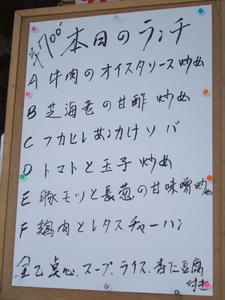 ¥700 本日のランチ
A 牛肉のオイスタソース炒め
B 芝海老の甘酢炒め
C フカヒレあんかけソバ
D トマトと玉子炒め
E 豚モツと長葱の甘味噌炒め
F 鶏肉とレタスチャーハン
全て点心、スープ、ライス、杏仁豆腐
付き